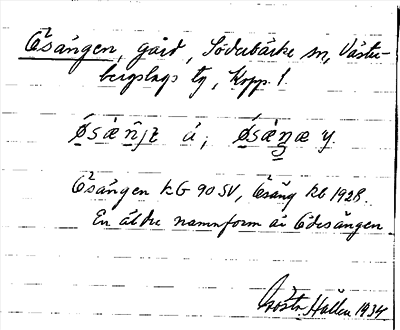 Ösången, gård, Söderbärke sn, Väster-
bergslags tg, Kopp. l.
ä, y.
Ösången KG 90 SV, Ösäng
En äldre namnform är Ödesången
Gösta Hallen 1934